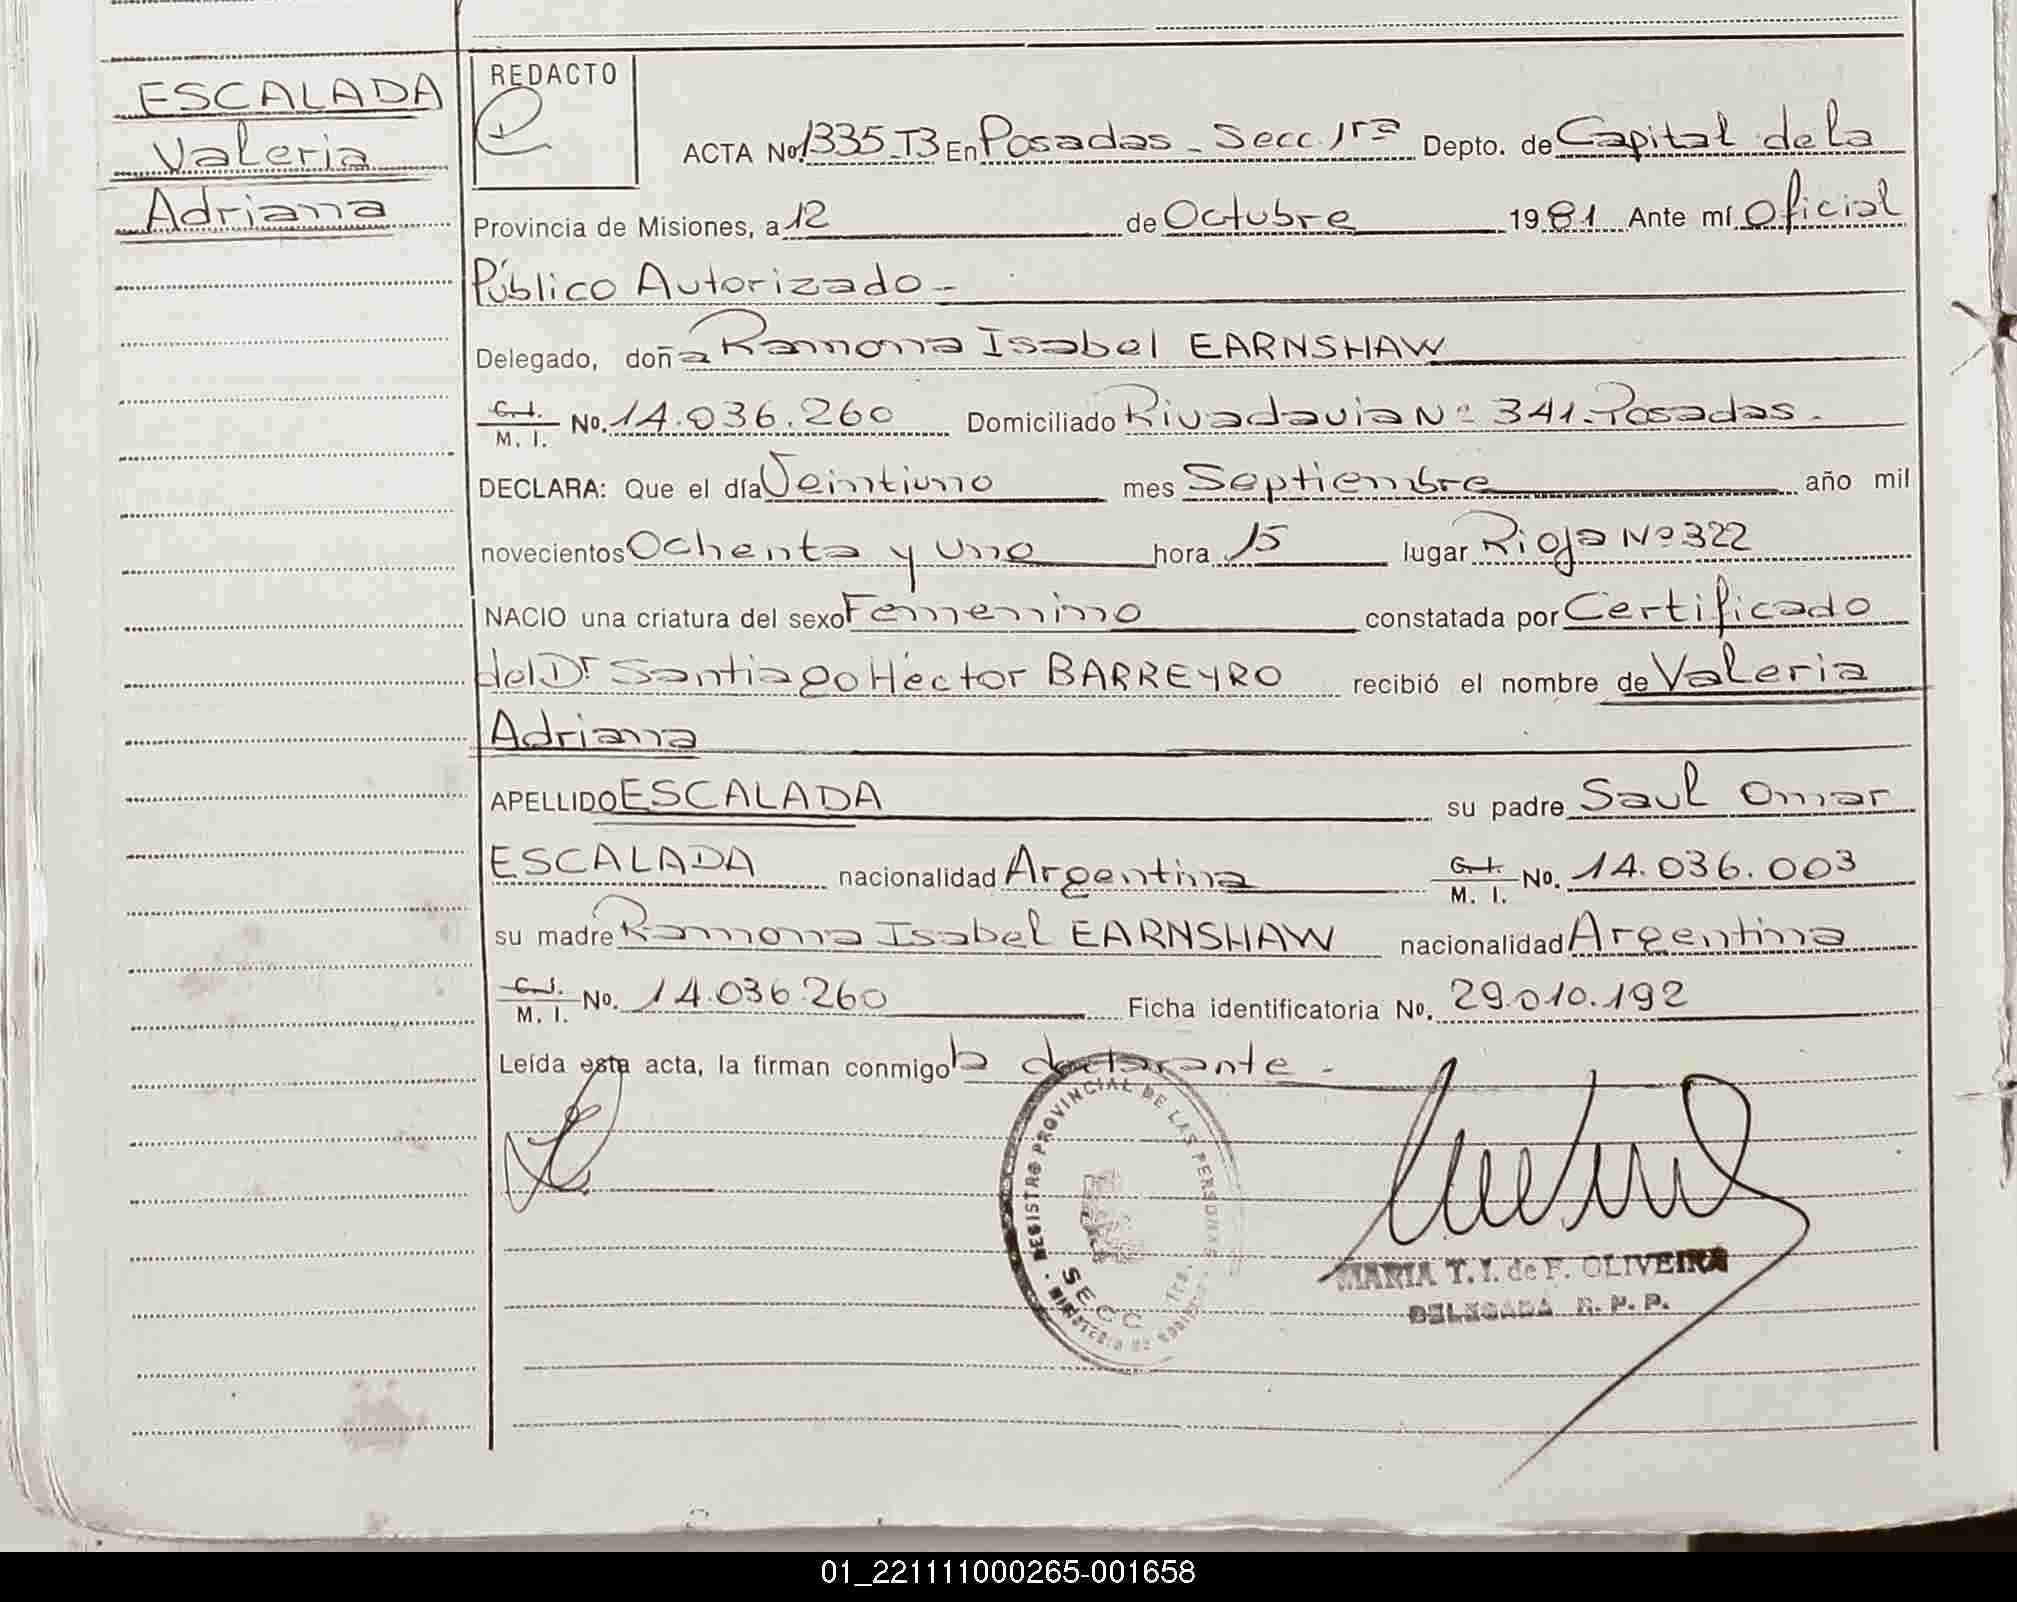 ESCALADA
Valeria
Adriana
REDACTO
ACTA No. 1335-T3 En Posadas - Secc. 1ra Depto. de Capital de la
Provincia de Misiones, a 12 de Octubre 1981 Ante mí Oficial
Público Autorizado -
Delegado, doña Ramona Isabel EARNSHAW
C. I.
M. I. No. 14.036.260 Domiciliado Rivadavia Nº 341 - Posadas.
DECLARA: Que el día Veintiuno mes Septiembre año mil
novecientos Ochenta y uno hora 15 lugar Rioja Nº 322
NACIO una criatura del sexo Femenino constatada por Certificado
del Dr Santiago Héctor BARREYRO recibió el nombre de Valeria
Adriana
APELLIDO ESCALADA su padre Saul Omar
ESCALADA nacionalidad Argentina C. I.
M. I. No. 14.036.003
su madre Ramona Isabel EARNSHAW nacionalidad Argentina
C. I.
M. I. No. 14.036.260 Ficha identificatoria No. 29.010.192
Leída esta acta, la firman conmigo la declarante -
REGISTRO PROVINCIAL DE LAS PERSONAS
SECC 1ra.
MARIA T. I. de F. OLIVEIRA
DELEGADA R. P. P.
01_221111000265-001658